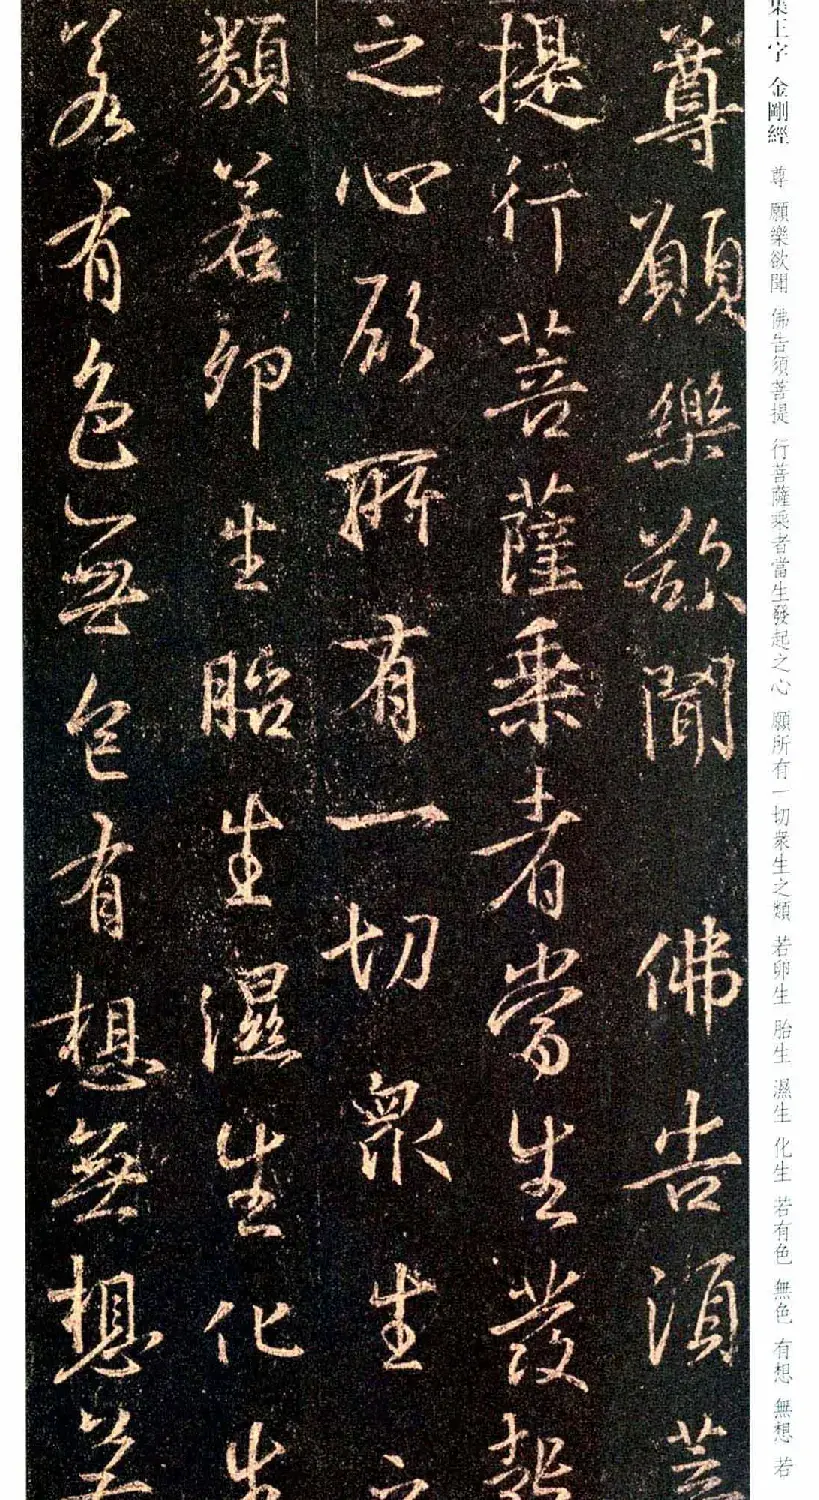 集王字 金剛經 尊 願樂欲聞 佛告須菩提 行菩薩乘者當生發起之心 願所有一切衆生之類 若卵生 胎生 濕生 化生 若有色 無色 有想 無想 若
尊願樂欲聞 佛告須菩
提行菩薩乘者當生發起
之心願所有一切衆生之
類若卵生胎生濕生化生
若有色無色有想無想若